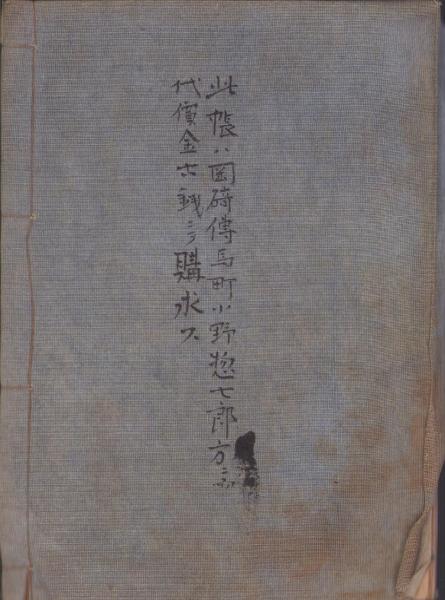 此帳ハ岡碕傳馬町小野惣七郎方ニ而
代價金六銭ニテ購求ス